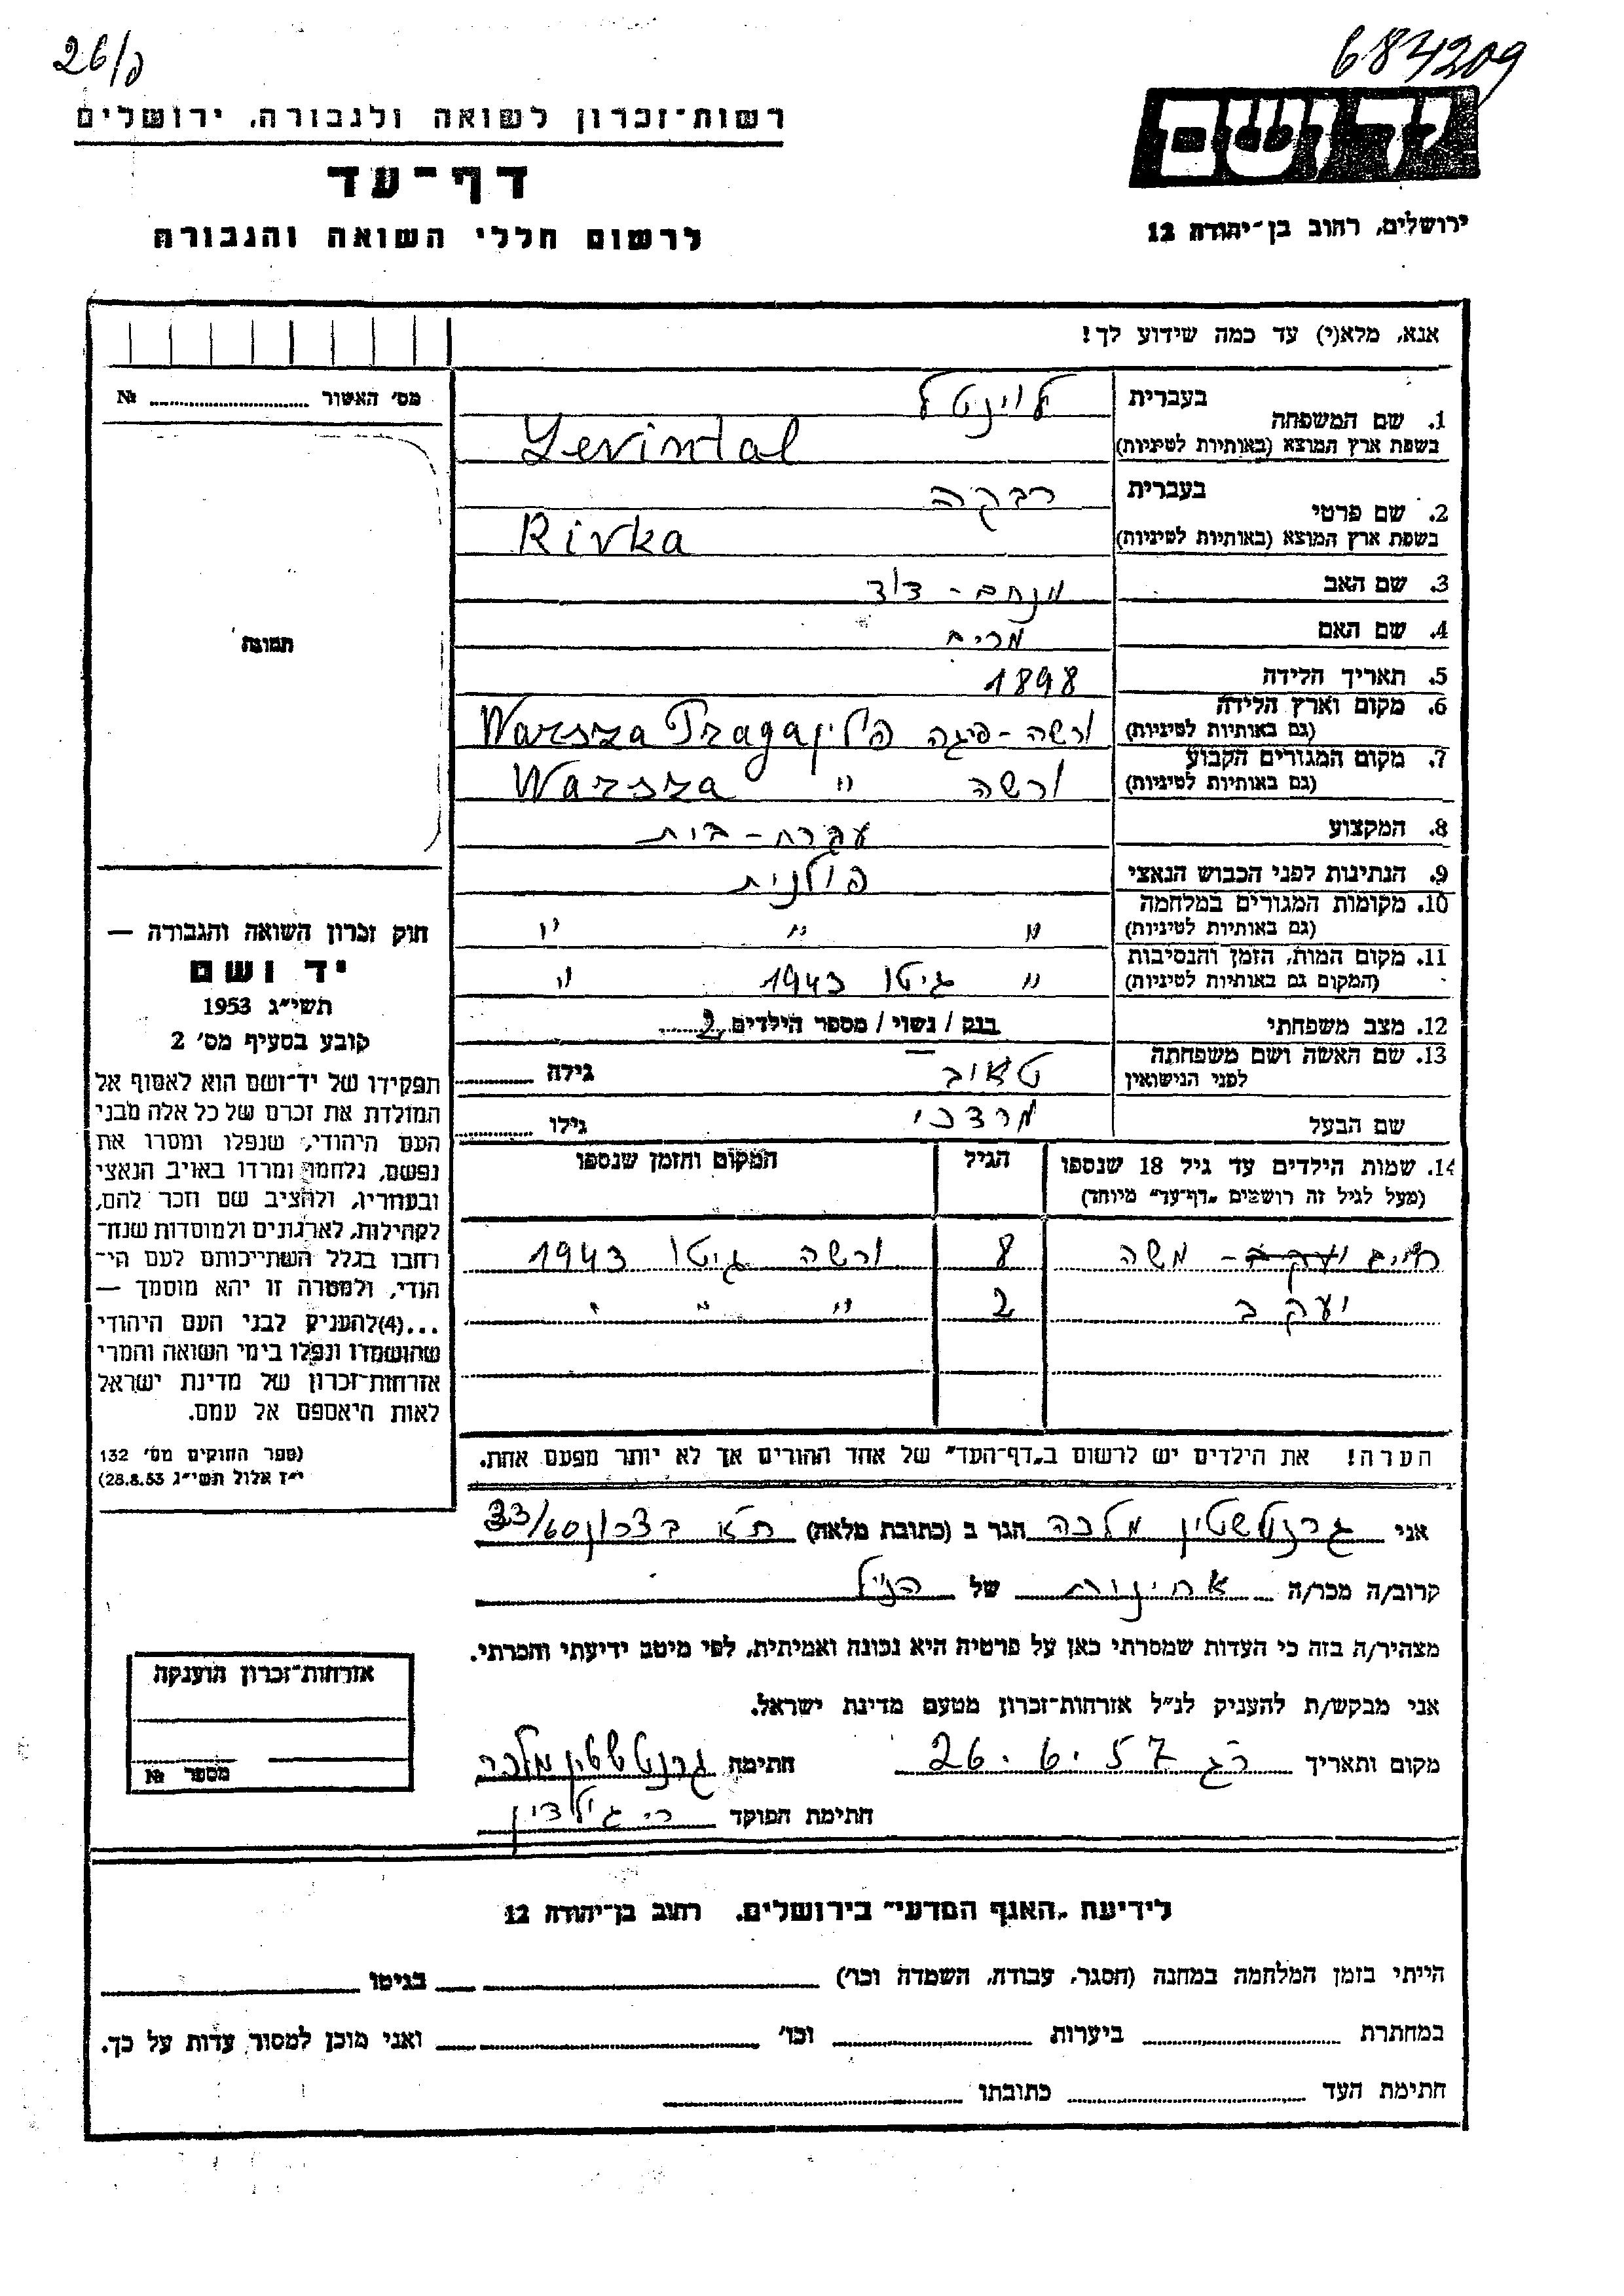 26/ק
684209
רשות־זכרון לשואה ולגבורה, ירושלים
יד ושם
דף־עד
לרשום חללי השואה והגבורה
ירושלים, רחוב בן־יהודה 12
אנא, מלא(י) עד כמה שידוע לך!
מס׳ האשור № 
תמונה
1. שם המשפחה
בעברית לוינטל
בשפת ארץ המוצא (באותיות לטיניות) Levintal
2. שם פרטי
בעברית רבקה
בשפת ארץ המוצא (באותיות לטיניות) Rivka
3. שם האב מנחם - דוד
4. שם האם מרים
5. תאריך הלידה 1898
6. מקום וארץ הלידה (גם באותיות לטיניות) ורשה - פרגה פולין Warsza Praga
7. מקום המגורים הקבוע (גם באותיות לטיניות) ורשה " Warsza
8. המקצוע עקרת - בית
9. הנתינות לפני הכבוש הנאצי פולנית
10. מקומות המגורים במלחמה (גם באותיות לטיניות) " " "
11. מקום המות, הזמן והנסיבות (המקום גם באותיות לטיניות) " גיטו 1943 "
12. מצב משפחתי רווק / נשוי / מספר הילדים 2
13. שם האשה ושם משפחתה לפני הנישואין טאוב גילה
שם הבעל מרדכי גילו
14. שמות הילדים עד גיל 18 שנספו הגיל המקום והזמן שנספו
(מעל לגיל זה רושמים „דף־עד" מיוחד)
משה 8 ורשה גיטו 1943
יעקב 2 " " "
הערה! את הילדים יש לרשום ב„דף־העד" של אחד ההורים אך לא יותר מפעם אחת.
חוק זכרון השואה והגבורה —
יד ושם
תשי״ג 1953
קובע בסעיף מס׳ 2
תפקידו של יד־ושם הוא לאסוף אל
המולדת את זכרם של כל אלה מבני
העם היהודי, שנפלו ומסרו את
נפשם, נלחמו ומרדו באויב הנאצי
ובעוזריו, ולהציב שם וזכר להם,
לקהילות, לארגונים ולמוסדות שנח־
רבו בגלל השתייכותם לעם הי־
הודי, ולמטרה זו יהא מוסמך —
...(4)להעניק לבני העם היהודי
שהושמדו ונפלו בימי השואה והמרי
אזרחות־זכרון של מדינת ישראל
לאות היאספם אל עמם.
(ספר החוקים מס׳ 132
י״ז אלול תשי״ג 28.8.53)
אני מלכה הגר ב (כתובת מלאה) ת״א בצרון 33/60
קרוב/ה מכר/ה אחינות של הנ״ל
מצהיר/ה בזה כי העדות שמסרתי כאן על פרטיה היא נכונה ואמיתית, לפי מיטב ידיעתי והכרתי.
אני מבקש/ת להעניק לנ״ל אזרחות־זכרון מטעם מדינת ישראל.
מקום ותאריך רג 26.6.57 חתימה מלכה
חתימת הפוקד
אזרחות־זכרון הוענקה
מספר №
לידיעת „האגף המדעי" בירושלים, רחוב בן־יהודה 12
הייתי בזמן המלחמה במחנה (הסגר, עבודה, השמדה וכו׳) בגיטו
במחתרת ביערות וכו׳ ואני מוכן למסור עדות על כך.
חתימת העד כתובתו